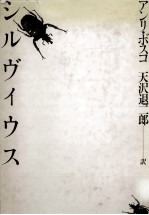 アンリ・ボスコ 天沢退二郎――訳
シルヴィウス